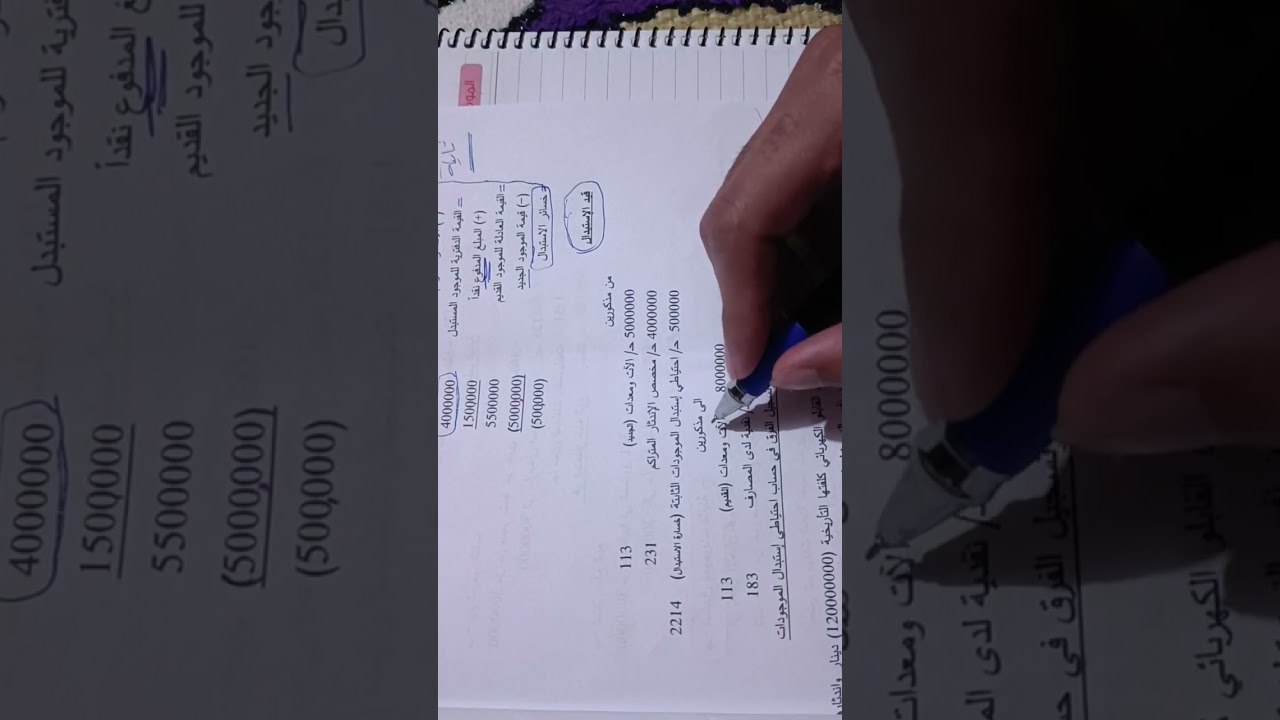 = القيمة الدفترية للموجود المستبدل 4000000
(+) المبلغ المدفوع نقداً 1500000
= القيمة العادلة للموجود القديم 5500000
(-) قيمة الموجود الجديد (5000,000)
= خسائر الاستبدال (500,000)
قيد الإستبدال
من مذكورين
5000000 حـ/ الآت ومعدات (الجديد) 113
4000000 حـ/ مخصص الإندثار المتراكم 231
500000 حـ/ احتياطي إستبدال الموجودات الثابتة (خسارة الاستبدال) 2214
الى مذكورين
8000000 الآت ومعدات (القديم) 113
نقدية لدى المصارف 183
الفرق في حساب احتياطي إستبدال الموجودات
الكهربائي كلفتها التأريخية (120000000) دينار